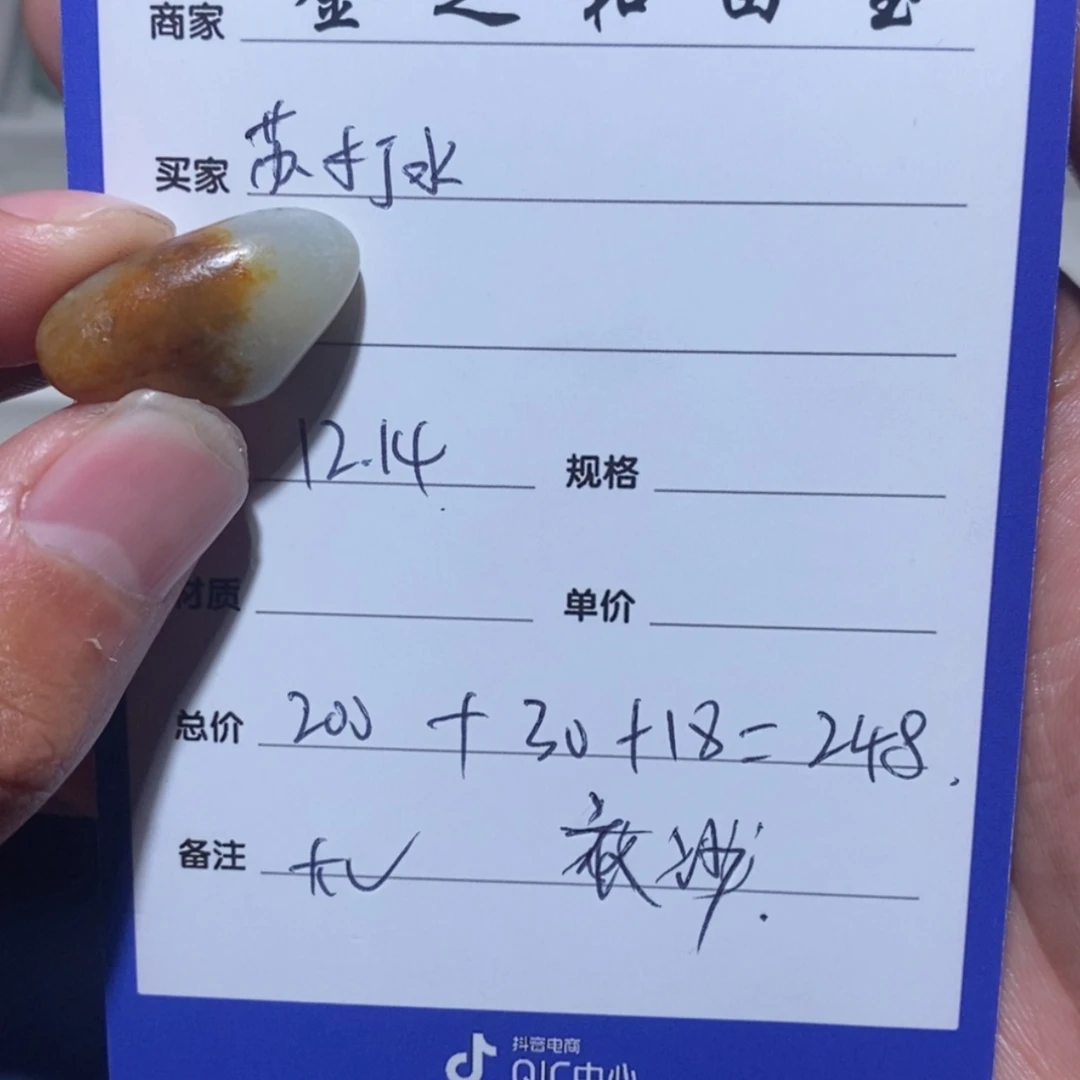 商家 金之和田玉
买家 苏打水
12.14 规格
材质 单价
总价 200 + 30 + 18 = 248.
备注
抖音电商
QIC中心